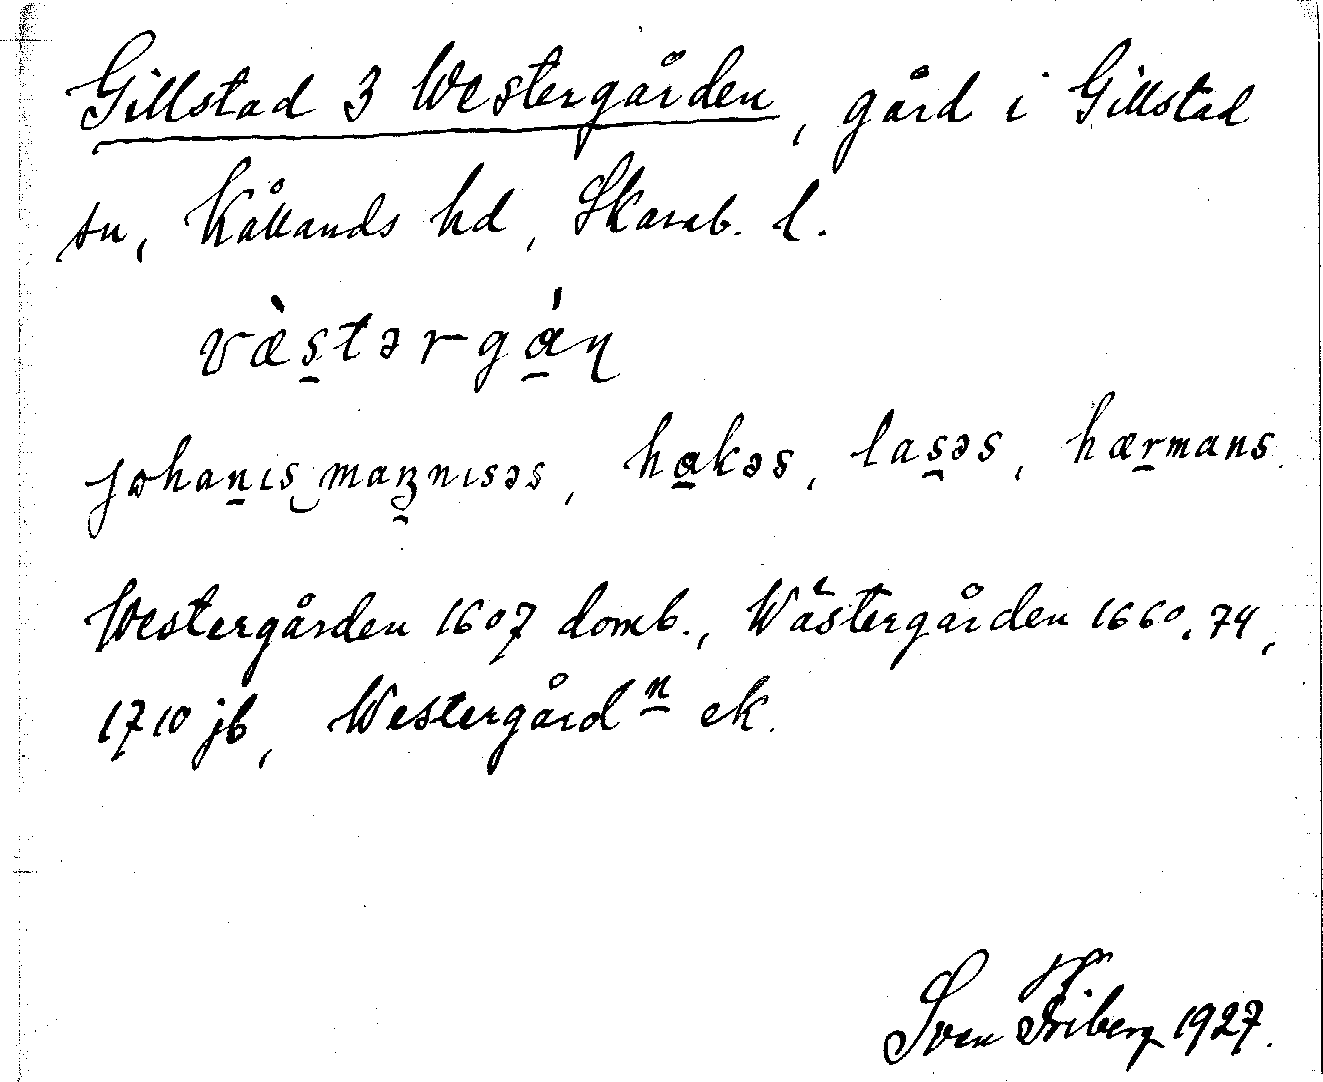 Gillstad 3 Westergården, gård i Gillstad
sn, Kållands hd, Skarab. l.
væ̀s̲tərgá̲ɳ
johan̲ıs‿maŋ̲nısəs, ha̲kəs, las̲əs, hær̲mans.
Westergården 1607 domb., Wästergården 1660, 74,
1710 jb, Westergård<sup>n</sup> ek.
Sven Friberg 1927.